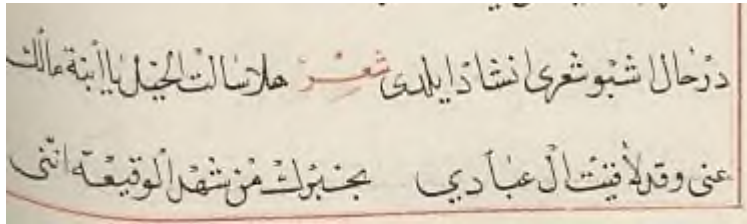 درحال اشبو شعرى انشاد ايلدى شعر هلا سالت الخيل يا ابنة مالك
عنى وقد لاقيت ال عبادي بخبرك من شهد الوقيعة اننى